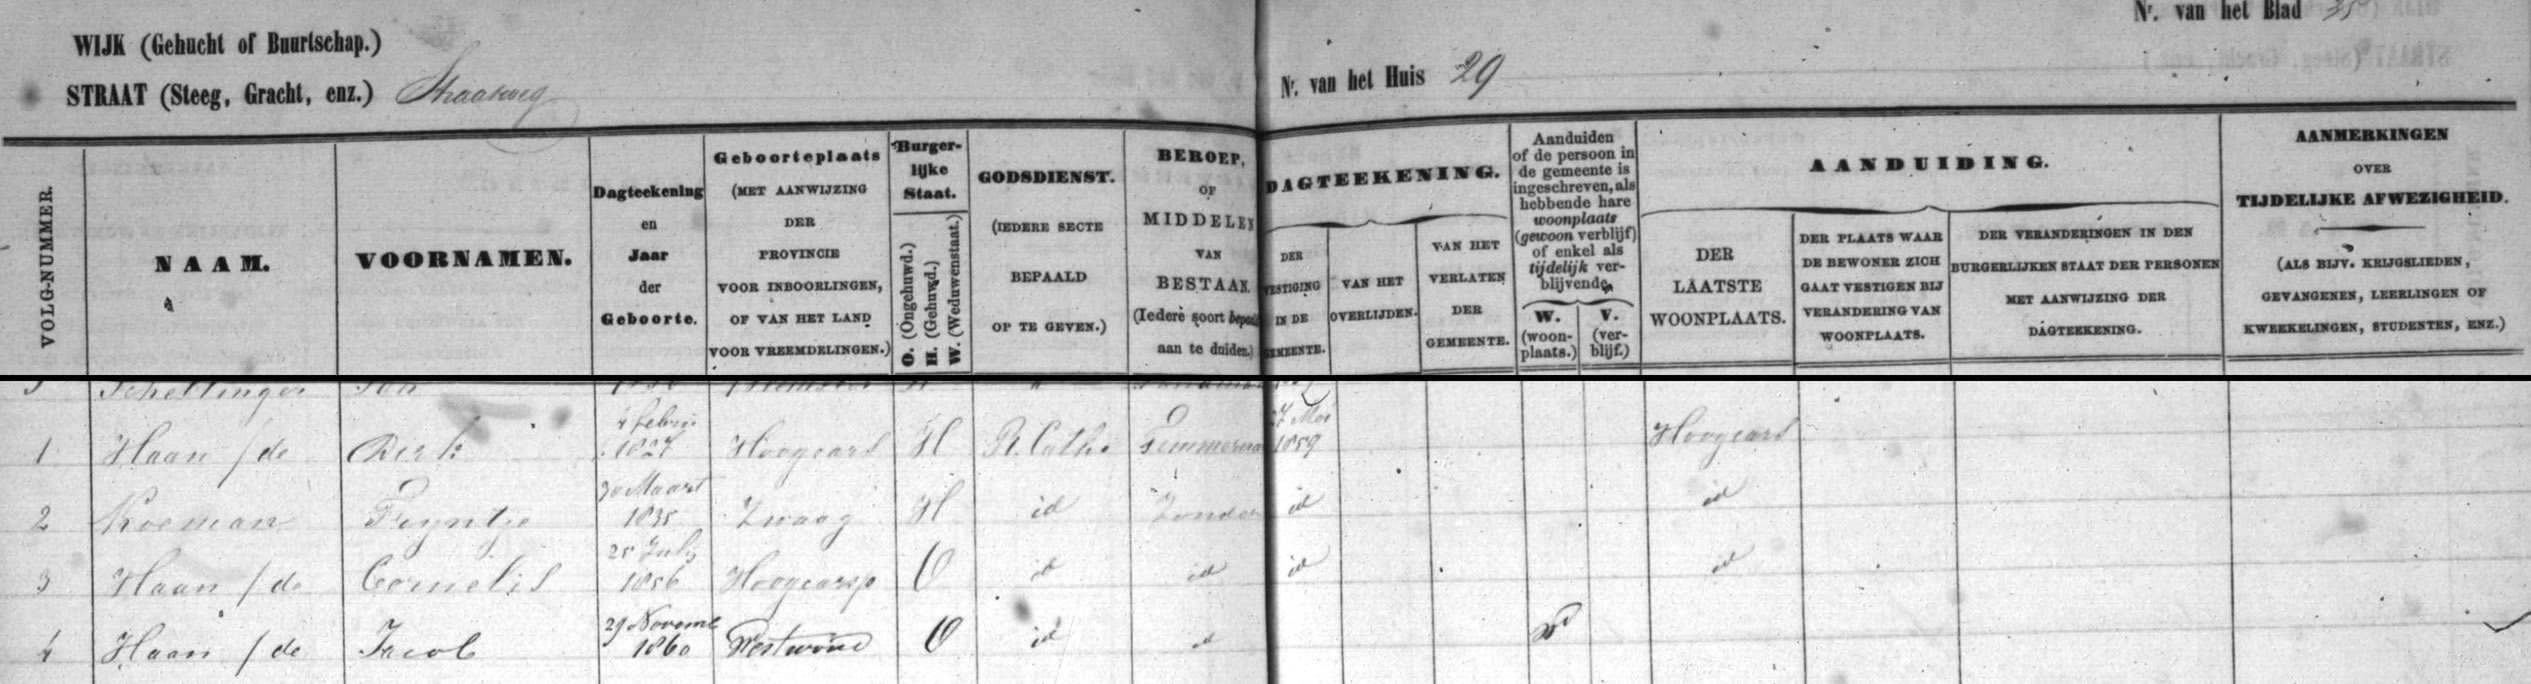 Nr. van het Blad 35
WIJK (Gehucht of Buurtschap.)
STRAAT (Steeg, Gracht, enz.) Straatweg
Nr. van het Huis 29
VOLG-NUMMER.
NAAM.
VOORNAMEN.
Dagteekening
en
Jaar
der
Geboorte.
Geboorteplaats
(MET AANWIJZING
DER
PROVINCIE
VOOR INBOORLINGEN,
OF VAN HET LAND
VOOR VREEMDELINGEN.)
Burger-
lijke
Staat.
O. (Ongehuwd.)
H. (Gehuwd.)
W. (Weduwenstaat.)
GODSDIENST.
(IEDERE SECTE
BEPAALD
OP TE GEVEN.)
BEROEP,
OF
MIDDELEN
VAN
BESTAAN.
(Iedere soort bepaald
aan te duiden.)
DAGTEEKENING.
DER
VESTIGING
IN DE
GEMEENTE.
VAN HET
OVERLIJDEN.
VAN HET
VERLATEN
DER
GEMEENTE.
Aanduiden
of de persoon in
de gemeente is
ingeschreven, als
hebbende hare
woonplaats
(gewoon verblijf)
of enkel als
tijdelijk ver-
blijvende.
W.
(woon-
plaats.)
V.
(ver-
blijf.)
AANDUIDING.
DER
LAATSTE
WOONPLAATS.
DER PLAATS WAAR
DE BEWONER ZICH
GAAT VESTIGEN BIJ
VERANDERING VAN
WOONPLAATS.
DER VERANDERINGEN IN DEN
BURGERLIJKEN STAAT DER PERSONEN
MET AANWIJZING DER
DAGTEEKENING.
AANMERKINGEN
OVER
TIJDELIJKE AFWEZIGHEID.
(ALS BIJV. KRIJGSLIEDEN,
GEVANGENEN, LEERLINGEN OF
KWEEKELINGEN, STUDENTEN, ENZ.)
Schellinger
4 Febru 27 Mei
1 Haan / de Derk 1827 Hoogcars H R. Catho Timmerma 1859 Hoogcars
30 Maart
2 Koeman Trijntje 1835 Zwaag H id Zonder id id
25 July
3 Haan / de Cornelis 1856 Hoogcarsp O id id id id
29 Novemb
4 Haan / de Jacob 1860 Westwoud O id id W